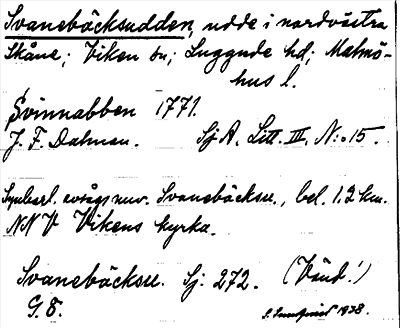 Svanebäcksudden, udde i nordvästra
Skåne; Viken sn; Luggude hd; Malmö-
hus l.
Svinnabben 1771.
J. F. Dalman. Sj A. Litt. III, N:o 15.
avsågs nuv. Svanebäcksu., bel. 1.2 km.
NNV Vikens kyrka.
Svanebäcksu. Sj: 272. (Vänd!)
G. 8. S. Sundqvist 1938.